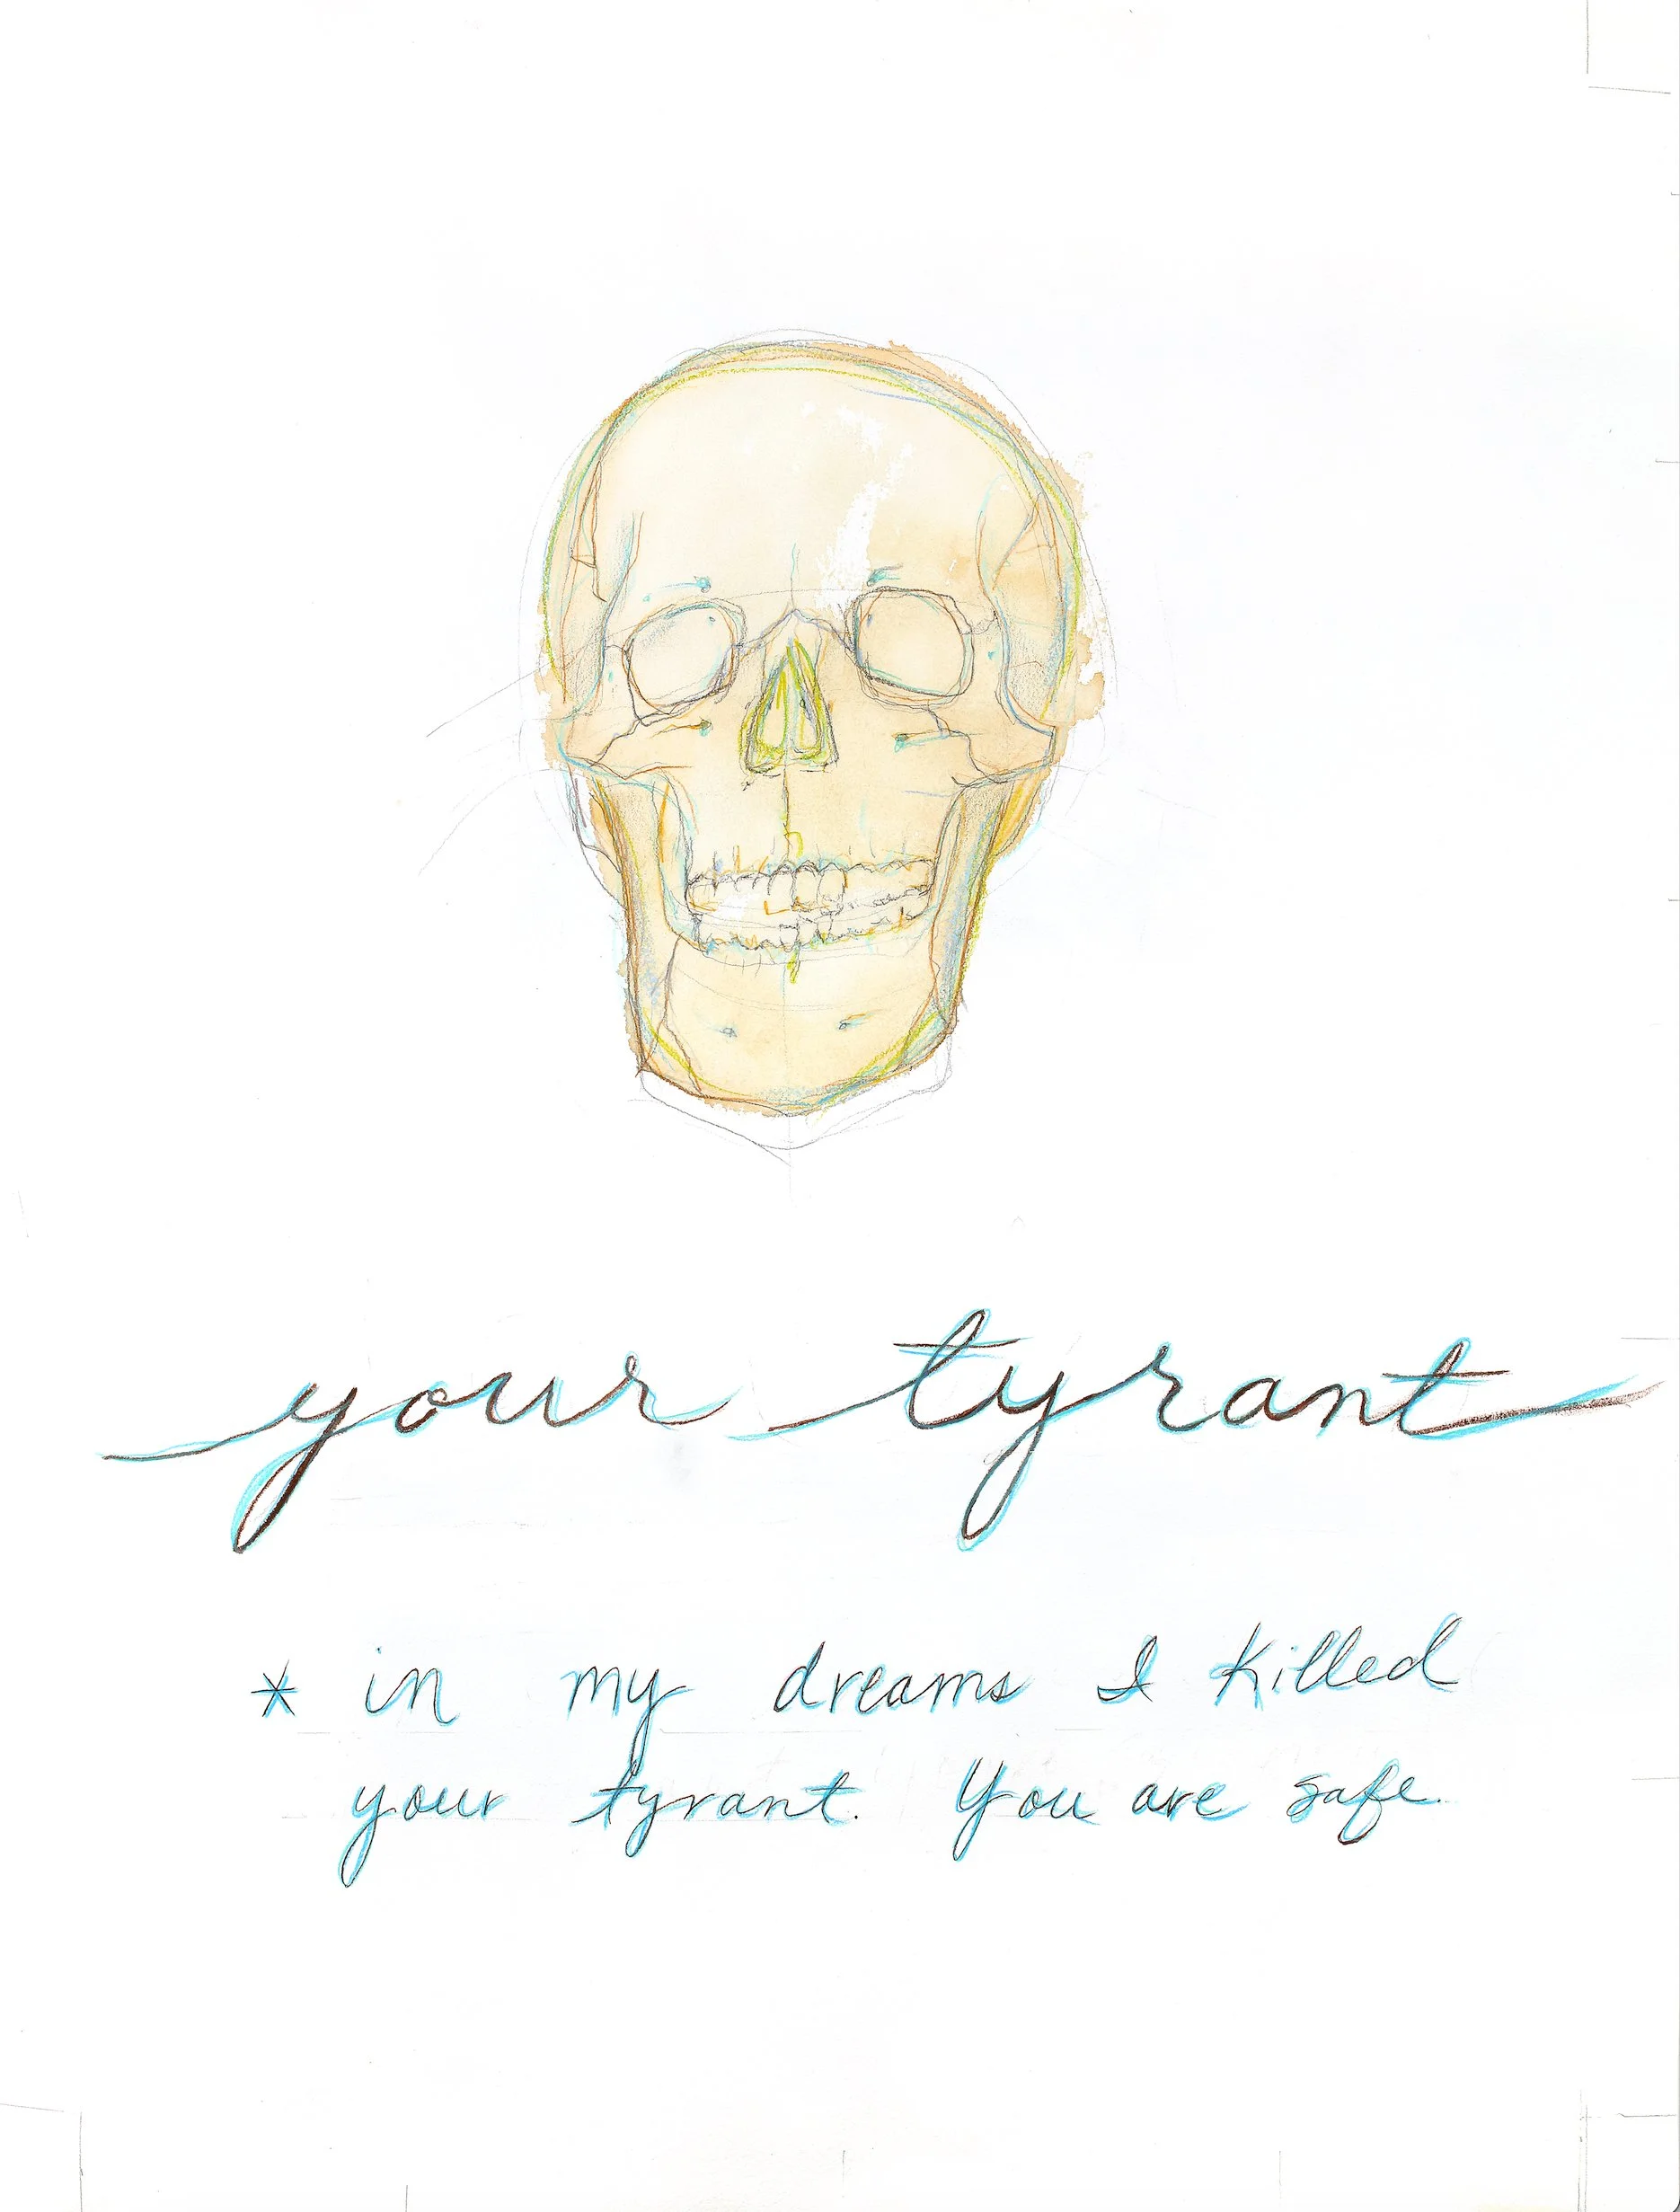 your tyrant
* in my dreams I killed
your tyrant. You are safe.